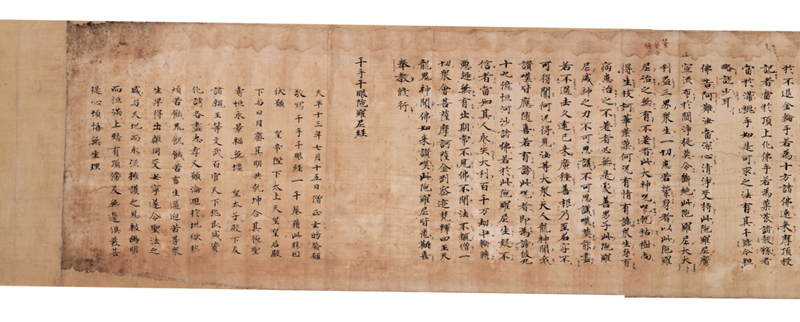 於不退金輪手若為十方諸佛速來摩頂授
記者當於頂上化佛手若為菓蓏諸穀稼者
當於蒲桃手如是可求之法有其千條今粗
略說少耳
佛告阿難汝當深心清淨受持此陀羅尼廣
宣流布於閻浮提莫令斷絕此陀羅尼能大
利益三界眾生一切患苦縈身者以此陀羅
尼治之無有不差者此大神呪呪乾枯樹尚
得生枝柯華菓何況有情有識眾生身有
病患治之不差者必無是處善男子此陀羅
尼威神之力不可思議不可思議歎莫能盡
若不過去久遠已來廣種善根乃至名字不
可得聞何況得見汝等大眾天人龍神聞我
讚嘆皆應隨喜若有謗此呪者即為謗彼九
十九億恒河沙諸佛若於此陀羅尼生疑不
信者當知其人永失大利百千万劫中輪轉
惡趣無有出期常不見佛不聞法不覩僧一
切眾會菩薩摩訶薩金剛密迹梵釋四王天
龍鬼神聞佛如來讚嘆此陀羅尼皆悉歡喜
奉教修行
千手千眼陀羅尼經
天平十三年七月十五日僧正玄昉發願
敬寫千手千眼經一千卷藉此勝因
伏願 皇帝陛下太上天皇皇后殿
下与日月齊其明共乾坤合其德聖
壽恒永景福無壃 皇太子殿下及
諸親王等文武百官天下兆民咸資
化誘各盡忠孝又願淪迴於地獄煩
惱苦餓鬼飢餓苦畜生逼迫苦等眾
生早得出離同受安寧遂令聖法之
盛与天地而永流擁護之恩被幽明
而恒滿上臻有頂傍及無邊俱發菩
提心頓悟無生理